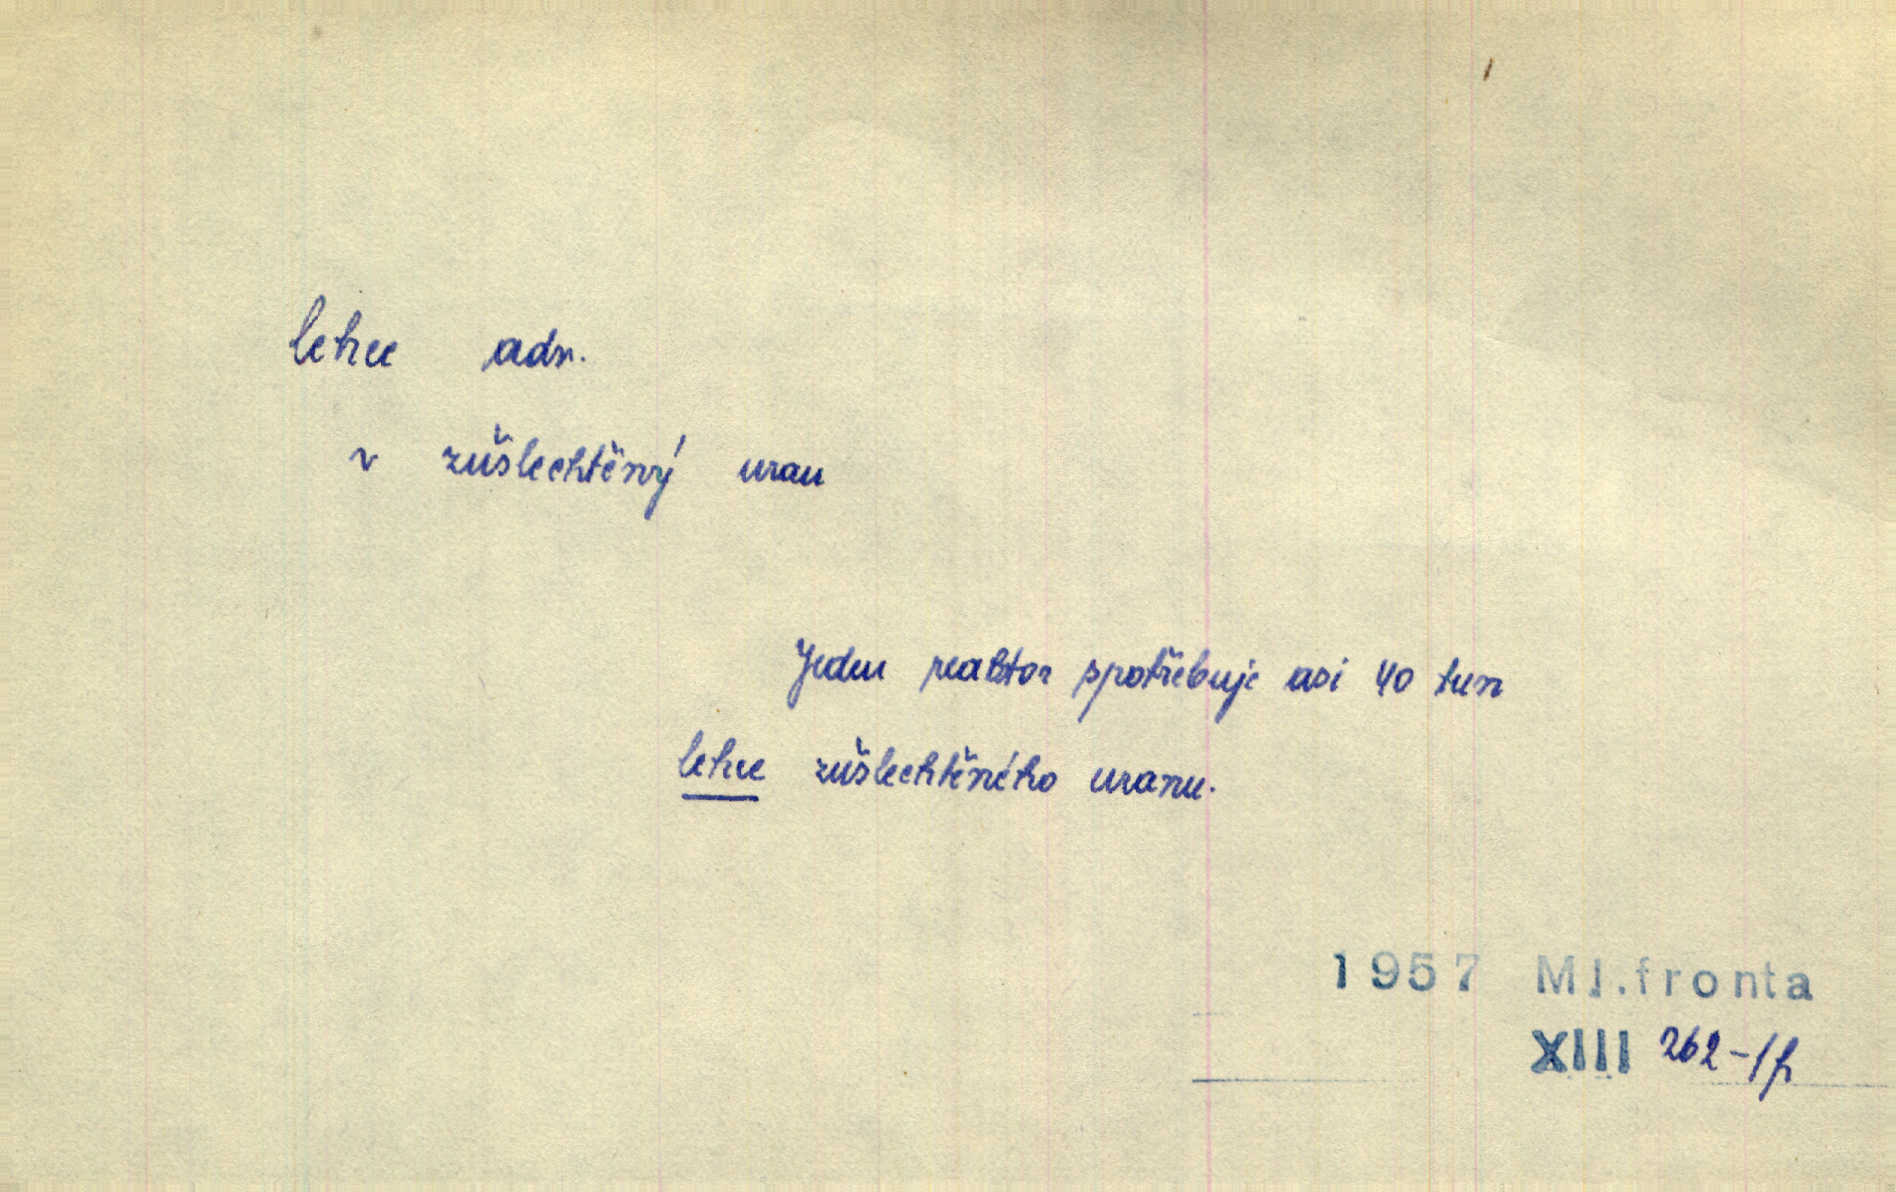 lehce adv.
~ zušlechtěný uran
Jeden reaktor spotřebuje asi 40 tun
lehce zušlechtěného uranu.
1957 Ml.fronta
XIII 262-1/